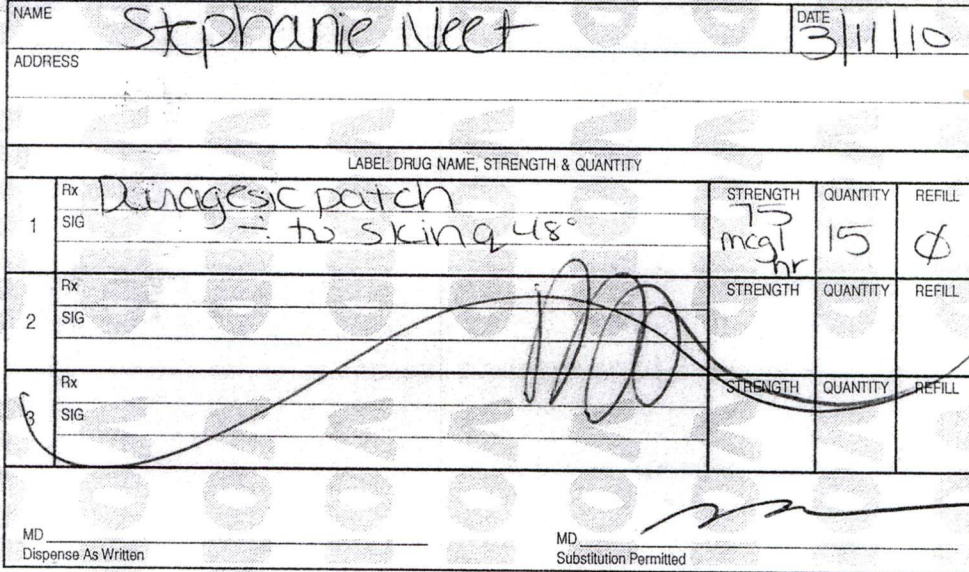 NAME Stephanie Neet DATE 3/11/10
ADDRESS
LABEL DRUG NAME, STRENGTH & QUANTITY
1 Rx Duragesic patch STRENGTH 75 mcg/hr QUANTITY 15 REFILL Ø
SIG to skin q 48°
2 Rx STRENGTH QUANTITY REFILL
SIG
3 Rx STRENGTH QUANTITY REFILL
SIG
MD MD
Dispense As Written Substitution Permitted